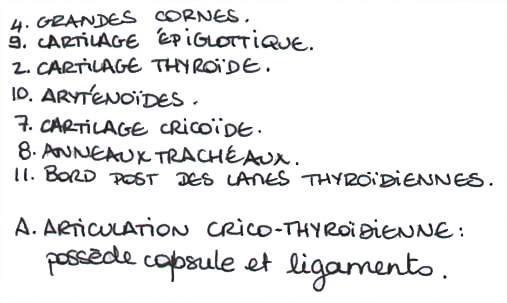 4. GRANDES CORNES.
9. CARTILAGE ÉPIGLOTTIQUE.
2. CARTILAGE THYROÏDE.
10. ARYTÉNOÏDES.
7. CARTILAGE CRICOÏDE.
8. ANNEAUX TRACHÉAUX.
11. BORD POST DES LAMES THYROÏDIENNES.
A. ARTICULATION CRICO-THYROÏDIENNE :
possède capsule et ligaments.